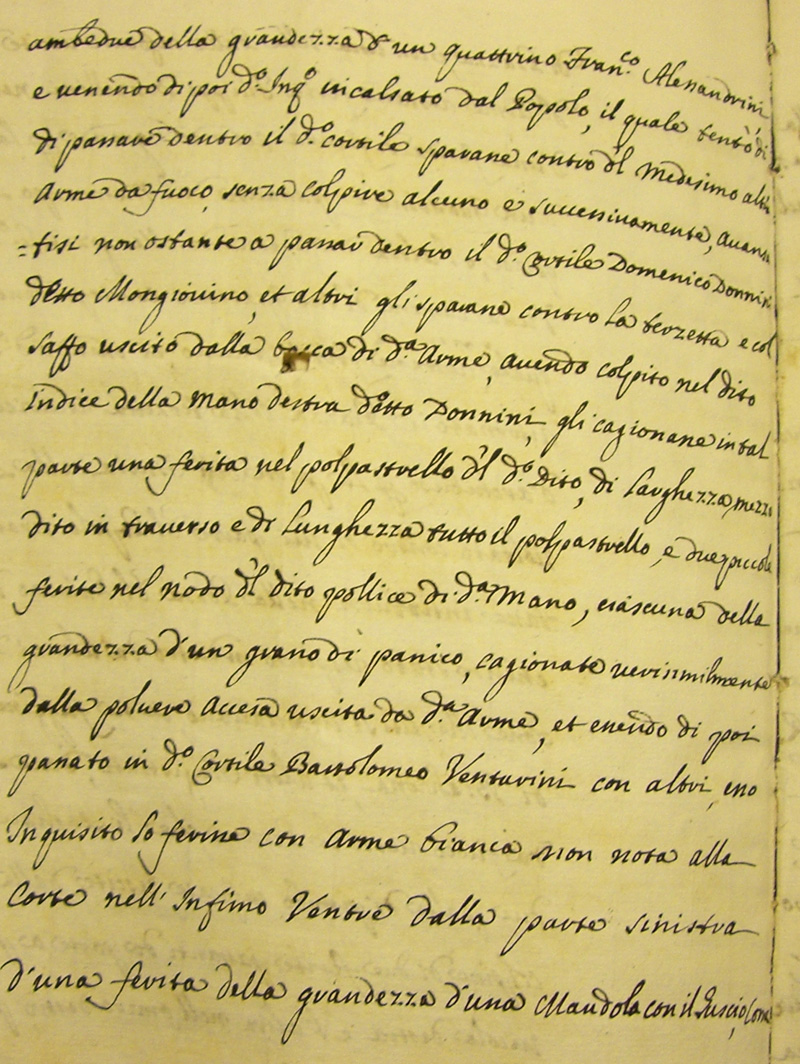 ambedue della grandezza d'un quattrino Fran.co Alessandrini,
e venendo di poi d.o Inq.o incalsato dal Popolo, il quale tentò di
di passare dentro il d.o cortile sparasse contro del Medesimo altr'
Arme da fuoco senza colpire alcuno e successivamente, avanza
=tisi non ostante a passar dentro il d.o Cortile Domenico Donnini
detto Mongiovino, et altri gli sparasse contro la terzetta e col
saffo uscito dalla bocca di d.a Arme, avendo colpito nel dito
Indice della mano destra detto Donnini, gli cagionasse in tal
parte una ferita nel polpastrello del d.o Dito, di larghezza, mezzo
dito in traverso e di lunghezza tutto il polpastrello, e due piccole
ferite nel nodo del dito pollice di d.a Mano, ciascuna della
grandezza d'un grano di panico, cagionate verisimilmente
dalla polvere Accesa uscita da d.a Arme, et essendo di poi
passato in d.o Cortile Bartolomeo Venturini con altri, esso
Inquisito lo ferisse con Arme bianca non nota alla
Corte nell'Infimo Ventre dalla parte sinistra
d'una ferita della grandezza d'una Mandola con il